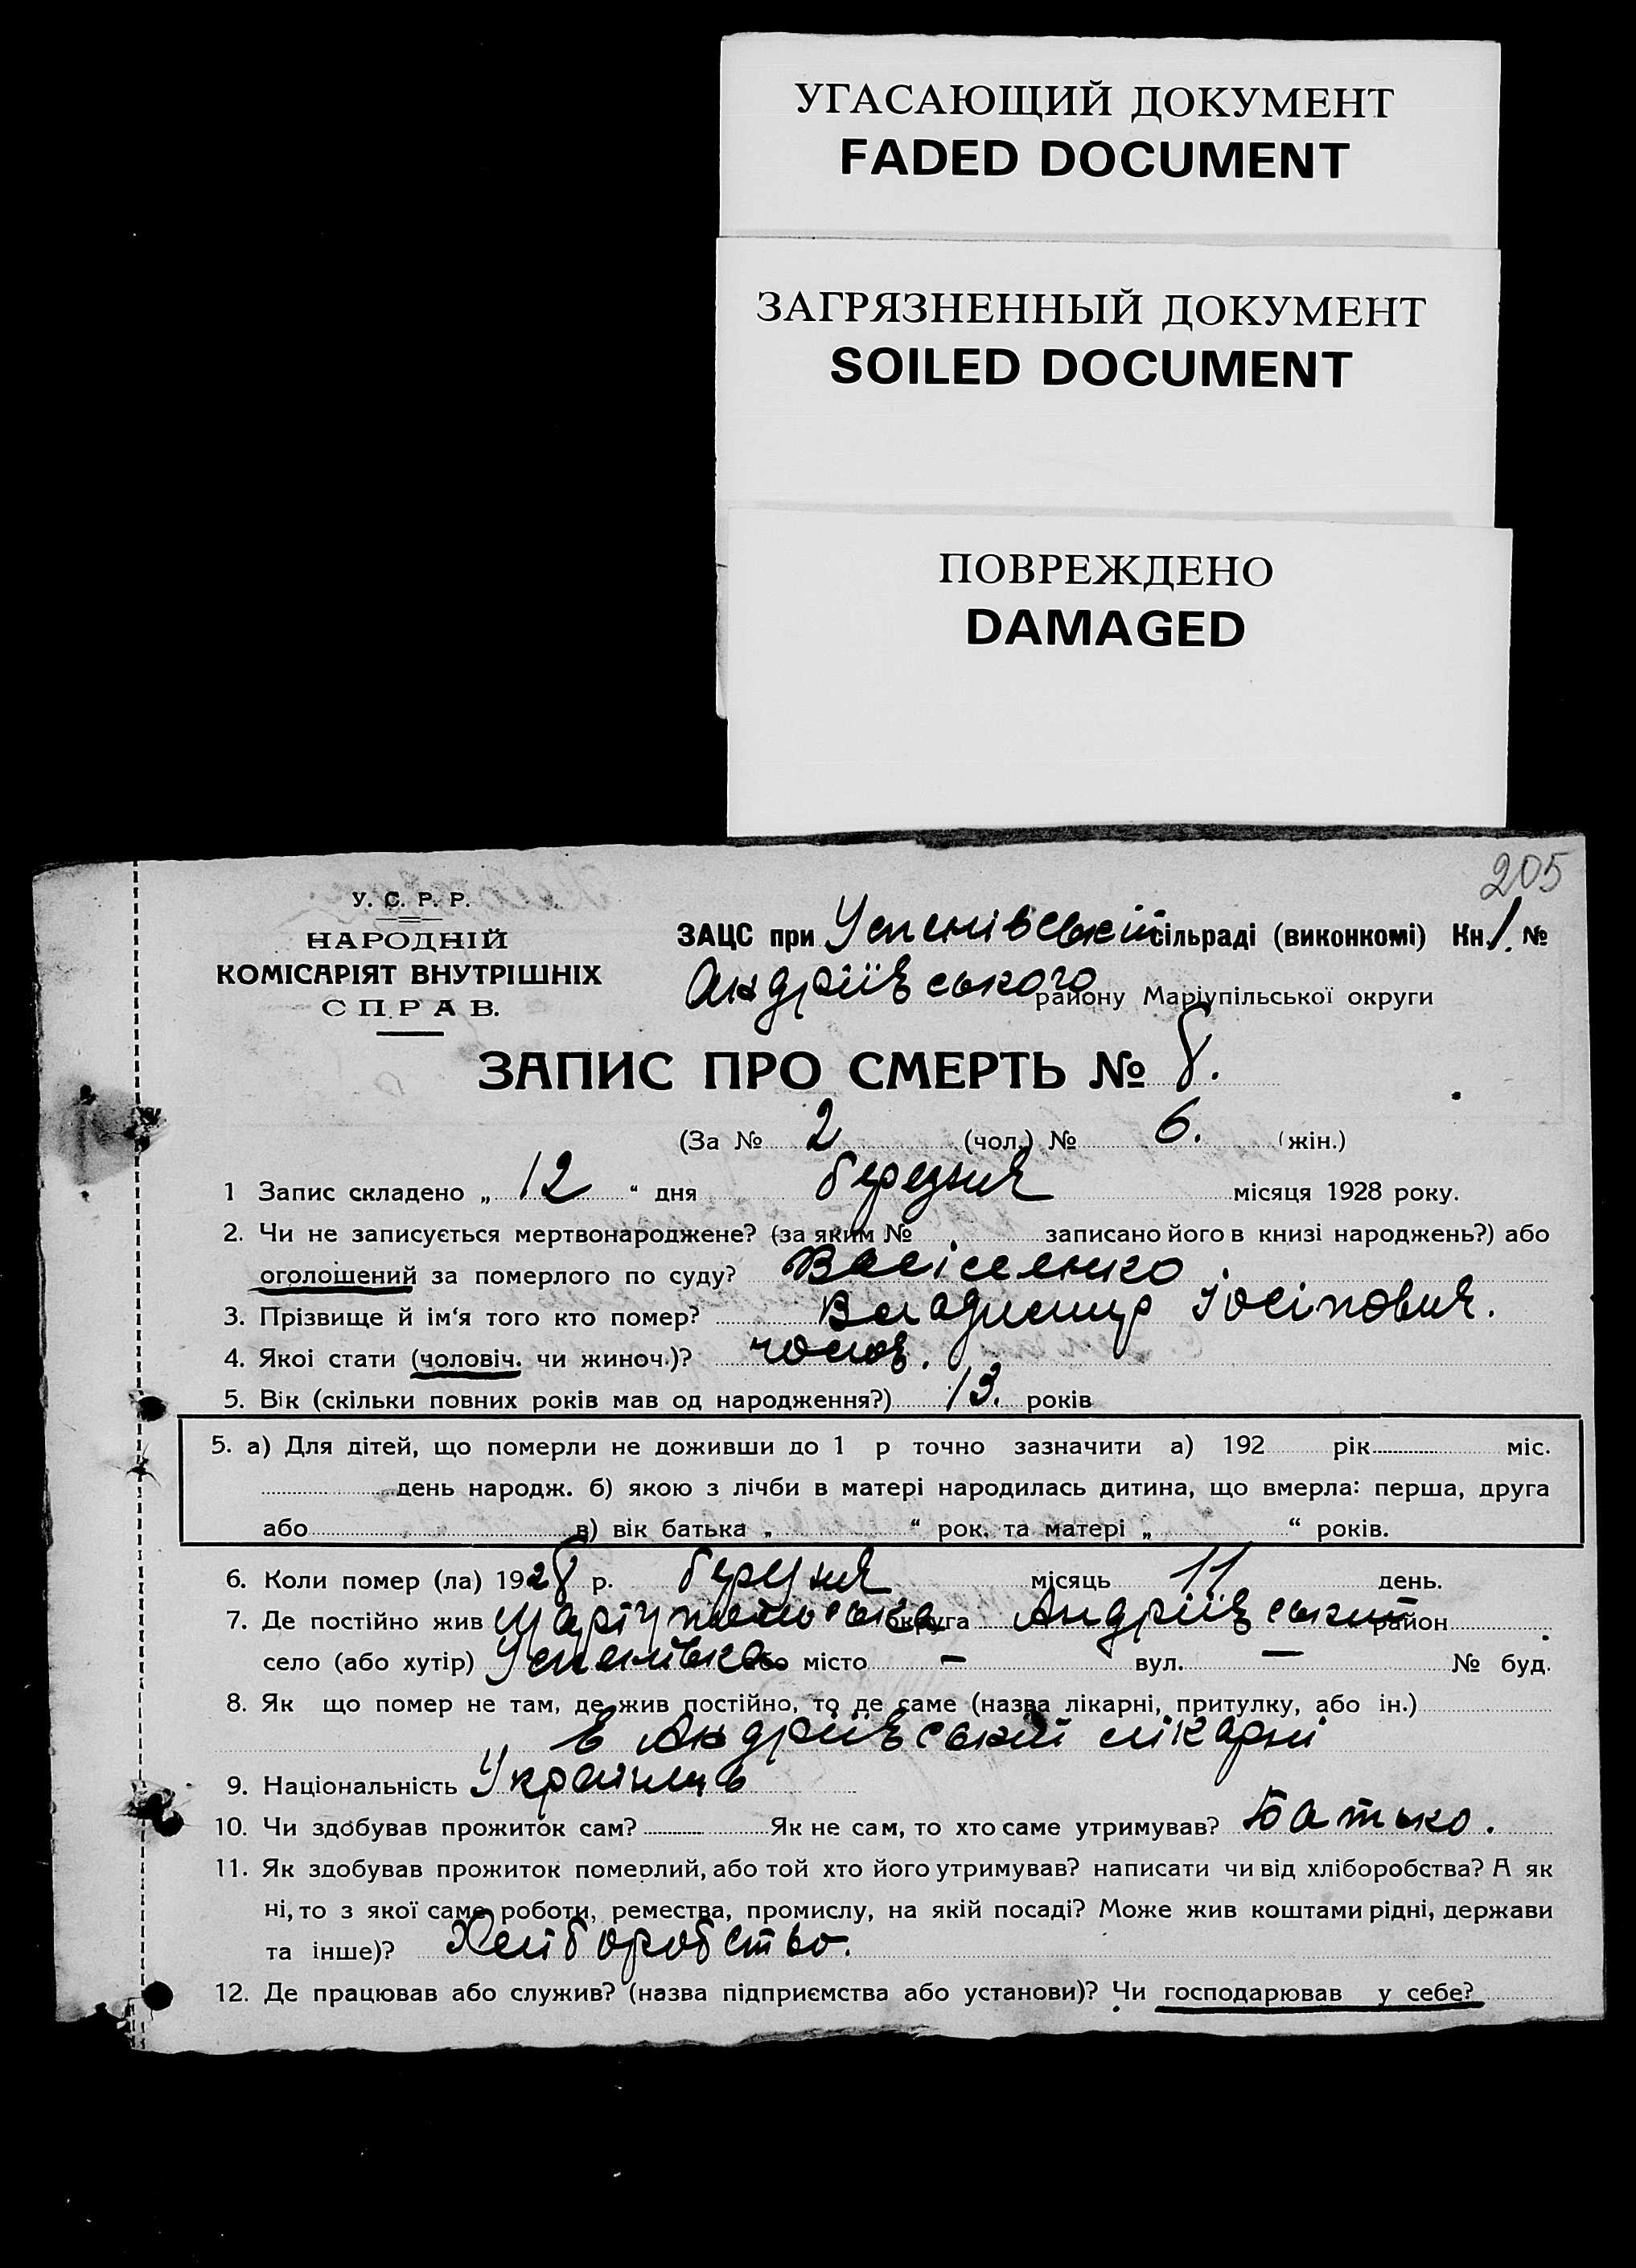 УГАСАЮЩИЙ ДОКУМЕНТ
FADED DOCUMENT
ЗАГРЯЗНЕННЫЙ ДОКУМЕНТ
SOILED DOCUMENT
ПОВРЕЖДЕНО
DAMAGED
205
У. С. Р. Р.
НАРОДНІЙ
КОМІСАРІЯТ ВНУТРІШНІХ
СПРАВ.
ЗАЦС при Успенівській сільраді (виконкомі) Кн. 1. №
Андріївського району Маріупільської округи
ЗАПИС ПРО СМЕРТЬ № 8.
(За № 2 (чол.) № 6. (жін.)
1 Запис складено „ 12 “ дня березня місяця 1928 року.
2. Чи не записується мертвонароджене? (за яким № записано його в книзі народжень?) або
оголошений за померлого по суду? Васіленко
3. Прізвище й ім‘я того кто помер? Владимир Іосіпович.
4. Якоі стати (чоловіч. чи жиноч.)? чолов.
5. Вік (скільки повних років мав од народження?) 13. років
5. а) Для дітей, що померли не доживши до 1 р точно зазначити а) 192 рік міс.
день народж. б) якою з лічби в матері народилась дитина, що вмерла: перша, друга
або в) вік батька „ “ рок. та матері „ “ років.
6. Коли помер (ла) 1928 р. березня місяць 11 день.
7. Де постійно жив Маріупольська округа Андріївський район
село (або хутір) Успенівка або місто — вул. — № буд.
8. Як що помер не там, де жив постійно, то де саме (назва лікарні, притулку, або ін.)
в Андріївській лікарні
9. Національність Українець
10. Чи здобував прожиток сам? Як не сам, то хто саме утримував? Батько.
11. Як здобував прожиток померлий, або той хто його утримував? написати чи від хліборобства? А як
ні, то з якої саме роботи, ремества, промислу, на якій посаді? Може жив коштами рідні, держави
та інше)? Хліборобство.
12. Де працював або служив? (назва підприємства або установи)? Чи господарював у себе?